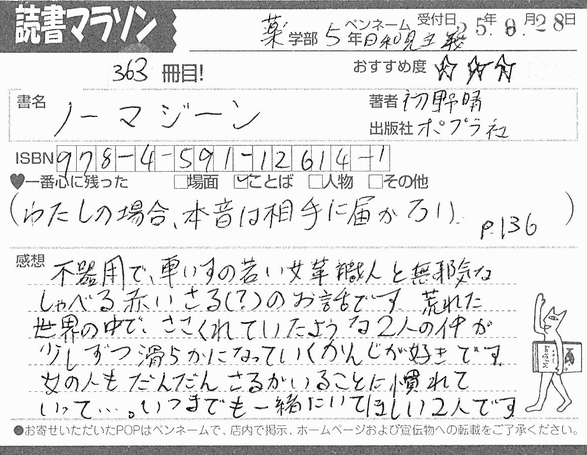 読書マラソン
薬 学部 5 年 ペンネーム 日和見主義 受付日 25年 8月 28日
363 冊目!
おすすめ度 ☆☆☆
書名 ノーマジーン
著者 初野晴
出版社 ポプラ社
ISBN 978-4-591-12614-1
♥一番心に残った □場面 ☑ことば □人物 □その他
(わたしの場合、本音は相手に届かない。 P.136 )
感想 不器用で、車いすの若い女革職人と無邪気な
しゃべる赤いさる(?)のお話です。荒れた
世界の中で、ささくれていたような2人の仲が
少しずつ滑らかになっていくかんじが好きです。
女の人もだんだんさるがいることに慣れて
いって…。いつまでも一緒にいてほしい2人です。
●お寄せいただいたPOPはペンネームで、店内で掲示、ホームページおよび宣伝物への転載をご了承ください。